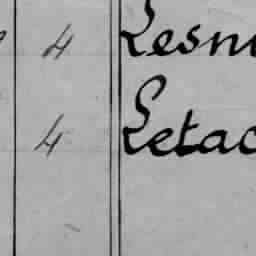 4 Lesn
4 Letac